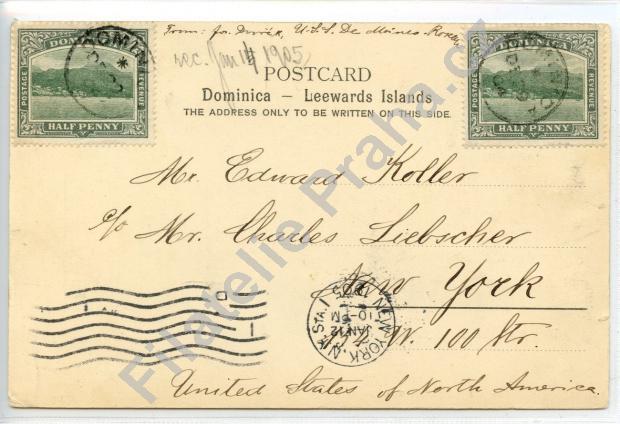 From: U.S.S. De Moines
rec. Jan 14 1905
POSTAGE DOMINICA REVENUE
HALF PENNY
POSTAGE DOMINICA REVENUE
HALF PENNY
DOMIN
POSTCARD
Dominica — Leewards Islands
THE ADDRESS ONLY TO BE WRITTEN ON THIS SIDE.
Mr. Edward Koller
c/o Mr. Charles Liebscher
New York
W. 100 Str.
United States of North America.
NEW YORK, N.Y. STA. 1
JAN 12
10-PM
1905
Filatelie Praha.cz